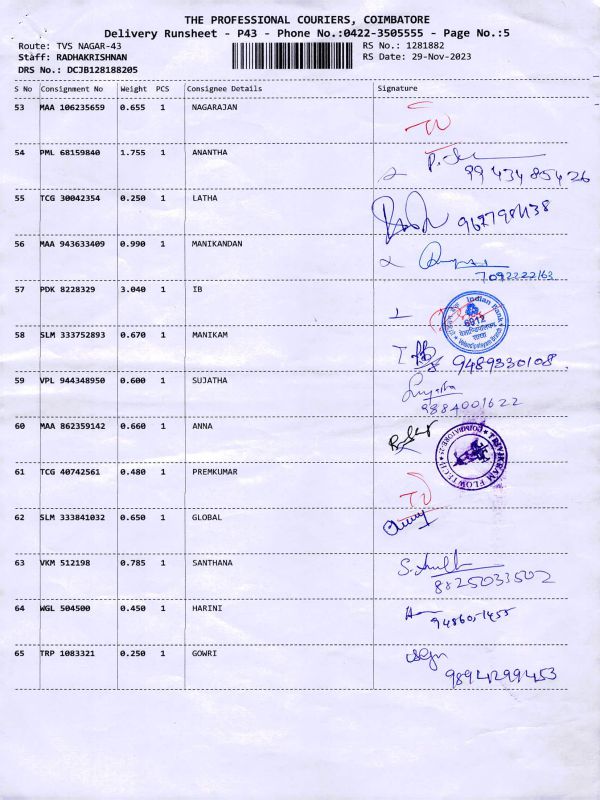 THE PROFESSIONAL COURIERS, COIMBATORE
Delivery Runsheet - P43 - Phone No.:0422-3505555 - Page No.:5
Route: TVS NAGAR-43 RS No.: 1281882
Staff: RADHAKRISHNAN RS Date: 29-Nov-2023
DRS No.: DCJB128188205
S No Consignment No Weight PCS Consignee Details Signature
53 MAA 106235659 0.655 1 NAGARAJAN
54 PML 68159840 1.755 1 ANANTHA
99434 85426
55 TCG 30042354 0.250 1 LATHA
56 MAA 943633409 0.990 1 MANIKANDAN
7092222163
57 PDK 8228329 3.040 1 IB
Indian Bank
6912
Velandipalayam Branch
58 SLM 333752893 0.670 1 MANIKAM
9489330108
59 VPL 944348950 0.600 1 SUJATHA
Sujatha
9884001622
60 MAA 862359142 0.660 1 ANNA
TRIVIKRAM FLOWTECH
COIMBATORE-25
61 TCG 40742561 0.480 1 PREMKUMAR
62 SLM 333841032 0.650 1 GLOBAL
63 VKM 512198 0.785 1 SANTHANA
8825033502
64 WGL 504500 0.450 1 HARINI
9486051455
65 TRP 1083321 0.250 1 GOWRI
9894299453